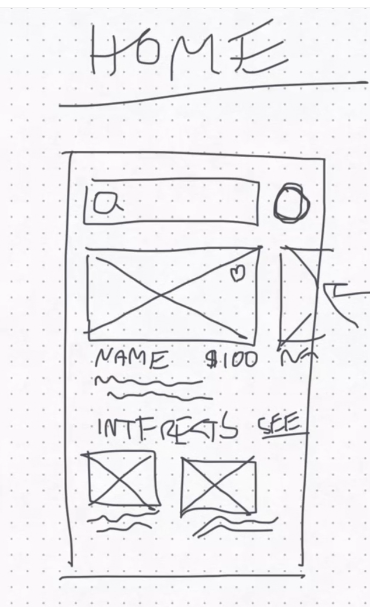 HOME
NAME $100 NA
INTERESTS SEE